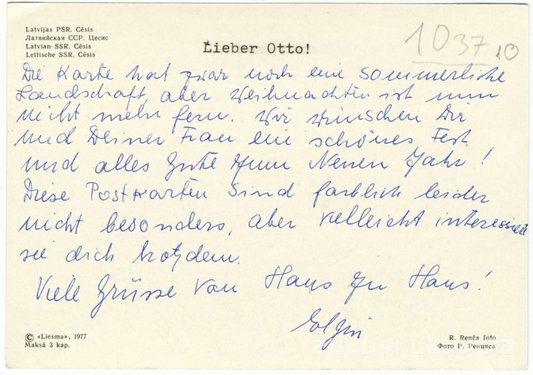 Latvijas PSR. Cēsis
Латвийская ССР. Цесис
Latvian SSR. Cēsis
Lettische SSR. Cēsis
Lieber Otto!
1037
10
Die Karte hat zwar noch eine sommerliche
Landschaft, aber Weihnachten ist nun
nicht mehr fern. Wir wünschen Dir
und Deiner Frau ein schönes Fest
und alles Gute zum Neuen Jahr!
Diese Postkarten sind farblich leider
nicht besonders, aber vielleicht interessiert
sie dich trotzdem.
Viele Grüsse von Haus zu Haus!
© «Liesma», 1977
Maksā 3 kap.
R. Renča foto
Фото Р. Ренциса